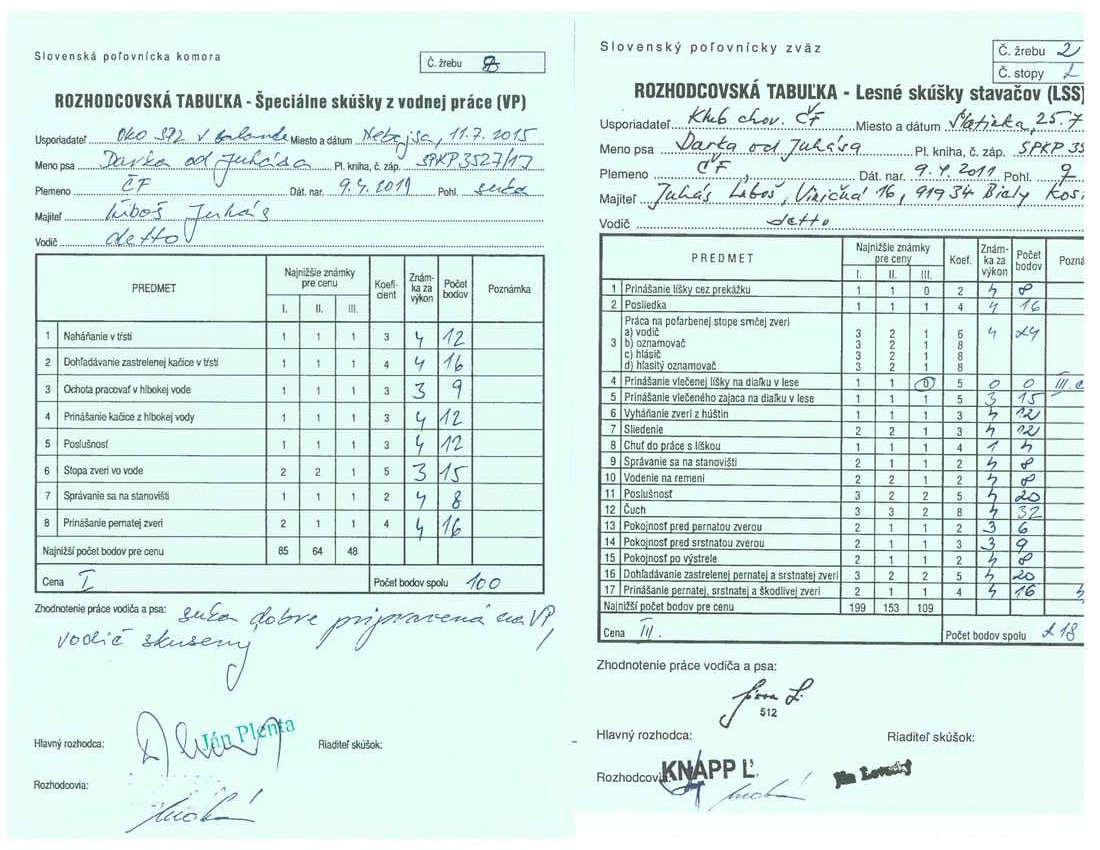 Slovenská poľovnícka komora
Č. žrebu 8
ROZHODCOVSKÁ TABUĽKA - Špeciálne skúšky z vodnej práce (VP)
Usporiadateľ OkO SPZ v Galante Miesto a dátum Nebojsa, 11.7.2015
Meno psa Darka od Juhása Pl. kniha, č. záp. SPKP 3527/17
Plemeno ČF Dát. nar. 9.4.2011 Pohl. suka
Majiteľ Ľuboš Juhás
Vodič detto
PREDMET Najnižšie známky pre cenu I. II. III. Koeficient Známka za výkon Počet bodov Poznámka
1 Naháňanie v tŕstí 1 1 1 3 4 12
2 Dohľadávanie zastrelenej kačice v tŕstí 1 1 1 4 4 16
3 Ochota pracovať v hlbokej vode 1 1 1 3 3 9
4 Prinášanie kačice z hlbokej vody 1 1 1 3 4 12
5 Poslušnosť 1 1 1 3 4 12
6 Stopa zveri vo vode 2 2 1 5 3 15
7 Správanie sa na stanovišti 1 1 1 2 4 8
8 Prinášanie pernatej zveri 2 1 1 4 4 16
Najnižší počet bodov pre cenu 85 64 48
Cena I Počet bodov spolu 100
Zhodnotenie práce vodiča a psa: suka dobre pripravená na VP,
vodič skusený
Ján Plenta
Hlavný rozhodca: Riaditeľ skúšok:
Rozhodcovia:
Slovenský poľovnícky zväz
Č. žrebu 2
Č. stopy 2
ROZHODCOVSKÁ TABUĽKA - Lesné skúšky stavačov (LSS)
Usporiadateľ Klub chov. ČF Miesto a dátum 25.7
Meno psa Darka od Juhása Pl. kniha, č. záp. SPKP 35
Plemeno ČF Dát. nar. 9.4.2011 Pohl.
Majiteľ Juhás Ľuboš, Viničná 16, 91934 Biely Kos
Vodič detto
PREDMET Najnižšie známky pre ceny I. II. III. Koef. Známka za výkon Počet bodov Pozná
1 Prinášanie líšky cez prekážku 1 1 0 2 4 8
2 Posliedka 1 1 1 4 4 16
3 Práca na pofarbenej stope srnčej zveri
a) vodič 3 2 1 6 4 24
b) oznamovač 3 2 1 8
c) hlásič 3 2 1 8
d) hlasitý oznamovač 3 2 1 8
4 Prinášanie vlečenej líšky na diaľku v lese 1 1 0 5 0 0 III. c
5 Prinášanie vlečeného zajaca na diaľku v lese 1 1 1 5 3 15
6 Vyháňanie zveri z húštin 1 1 1 3 4 12
7 Sliedenie 2 2 1 3 4 12
8 Chuť do práce s líškou 1 1 1 4 1 4
9 Správanie sa na stanovišti 2 1 1 2 4 8
10 Vodenie na remeni 2 2 1 2 4 8
11 Poslušnosť 3 2 2 5 4 20
12 Čuch 3 3 2 8 4 32
13 Pokojnosť pred pernatou zverou 2 1 1 2 3 6
14 Pokojnosť pred srstnatou zverou 2 1 1 3 3 9
15 Pokojnosť po výstrele 2 1 1 2 4 8
16 Dohľadávanie zastrelenej pernatej a srstnatej zveri 3 2 2 5 4 20
17 Prinášanie pernatej, srstnatej a škodlivej zveri 2 1 1 4 4 16
Najnižší počet bodov pre cenu 199 153 109
Cena III. Počet bodov spolu 218
Zhodnotenie práce vodiča a psa:
512
Hlavný rozhodca: Riaditeľ skúšok:
Rozhodcovia: KNAPP Ľ.